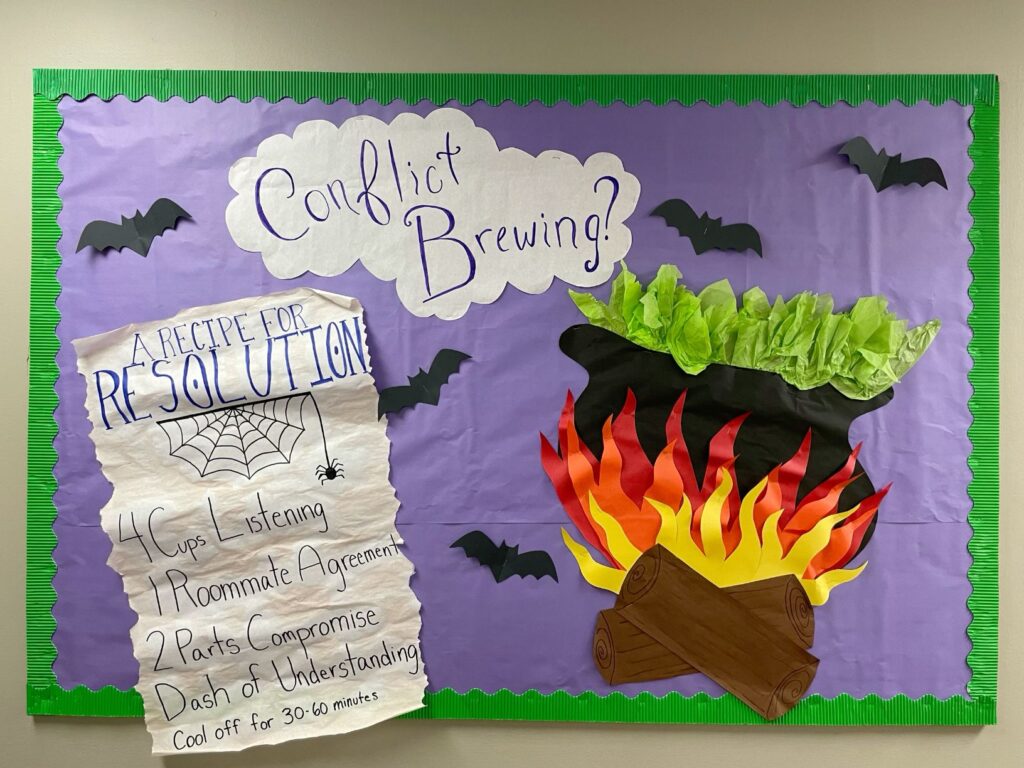 Conflict
Brewing?
A RECIPE FOR
RESOLUTION
4 Cups Listening
1 Roommate Agreement
2 Parts Compromise
Dash of Understanding
Cool off for 30-60 minutes